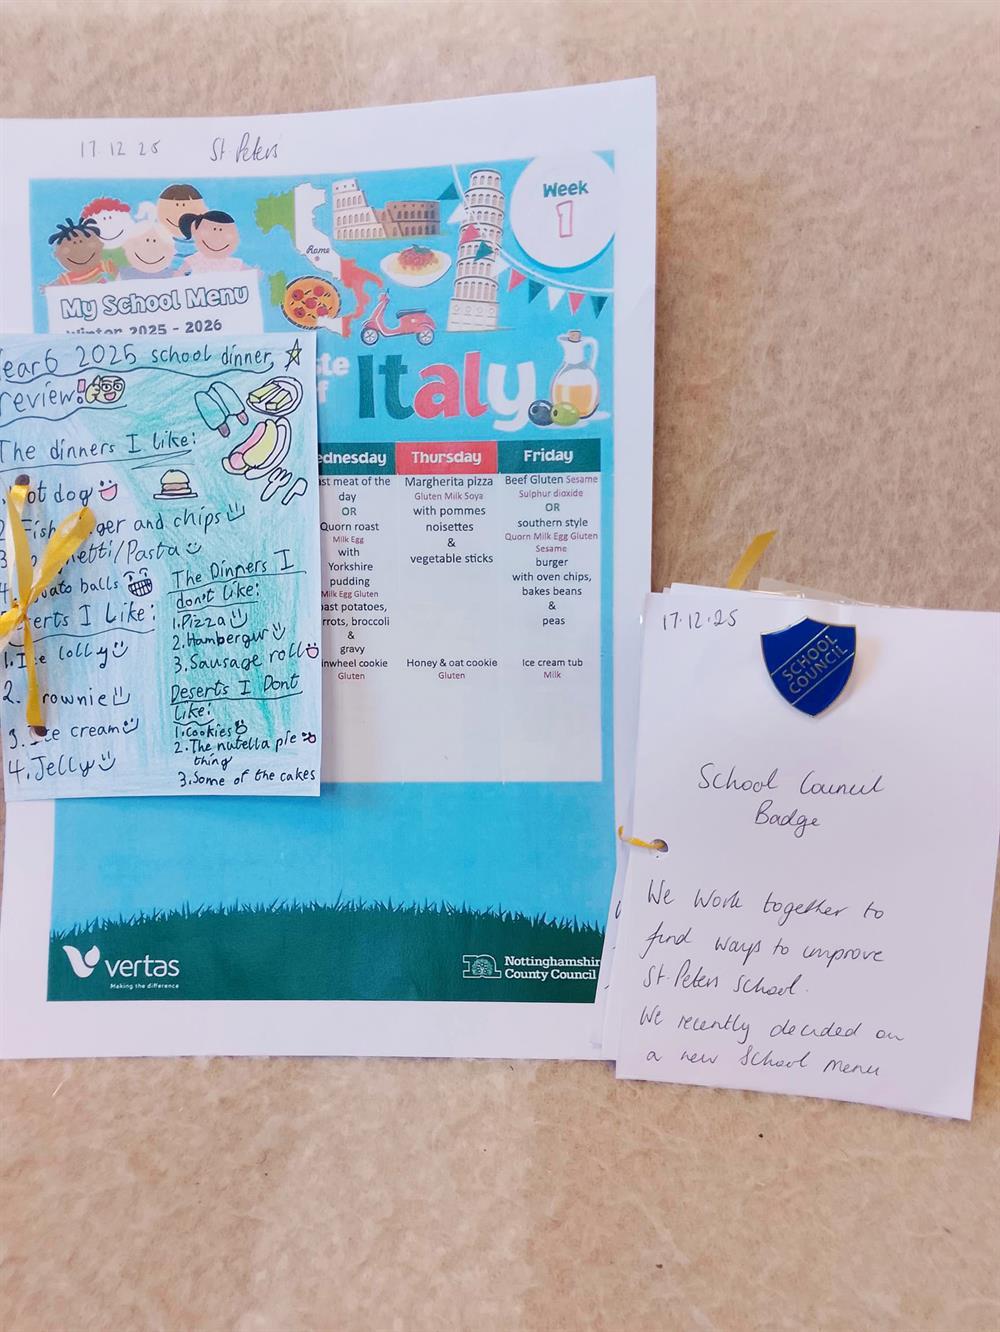 17.12.25 St. Peters
Week
1
Rome
My School Menu
Winter 2025 - 2026
Italy
Thursday
Friday
meat of the
day
OR
Quorn roast
Milk Egg
with
Yorkshire
pudding
Milk Egg Gluten
potatoes,
broccoli
&
gravy
cookie
Gluten
Margherita pizza
Gluten Milk Soya
with pommes
noisettes
&
vegetable sticks
Honey & oat cookie
Gluten
Beef Gluten Sesame
Sulphur dioxide
OR
southern style
Quorn Milk Egg Gluten
Sesame
burger
with oven chips,
bakes beans
&
peas
Ice cream tub
Milk
vertas
Making the difference
County Council
Year 6 2025 school dinner
review!
The dinners I like:
dog
and chips
/Pasta
balls
I Like:
1. lolly
2.
3. cream
4. Jelly
The Dinners I
don't like:
1. Pizza
2. Hambergur
3. Sausage roll
Deserts I Dont
like:
1. Cookies
2. The nutella pie
thing
3. Some of the cakes
17.12.25
SCHOOL
COUNCIL
School Council
Badge
We work together to
find ways to improve
St. Peters School.
We recently decided on
a new School menu